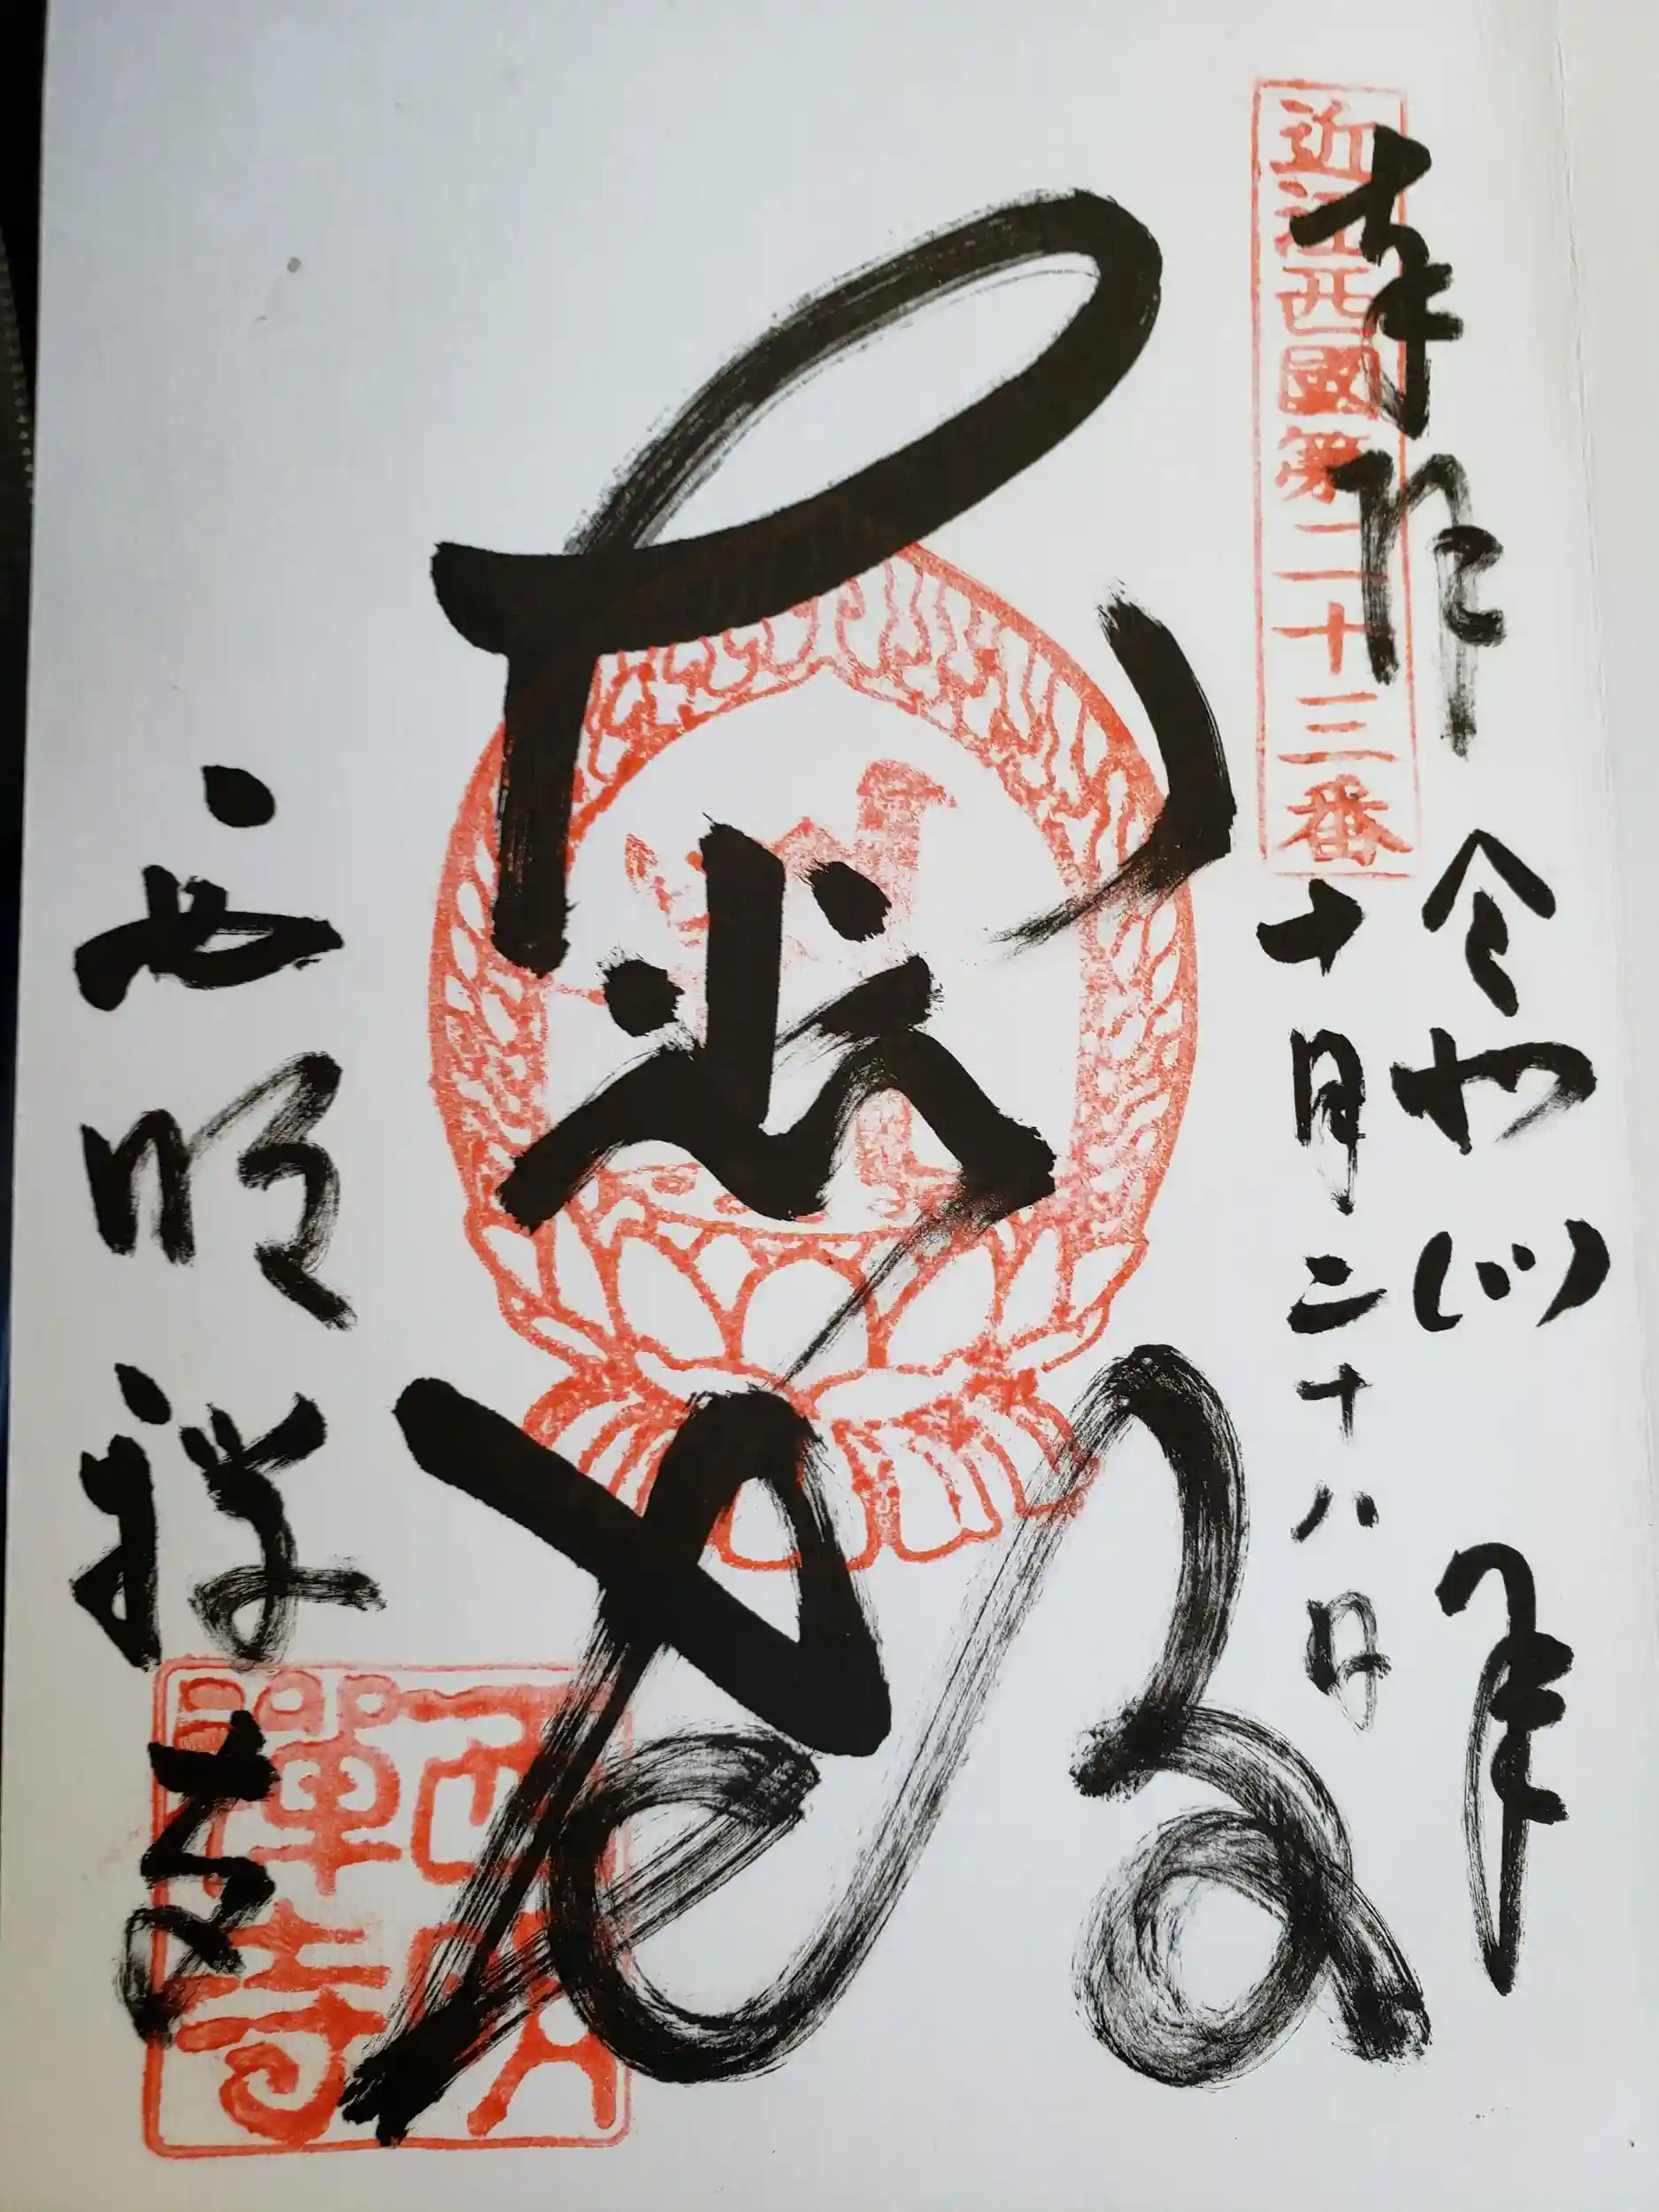 奉拝 令和四年
十月二十八日
近江西國第二十三番
西明禅寺
西明
禪寺